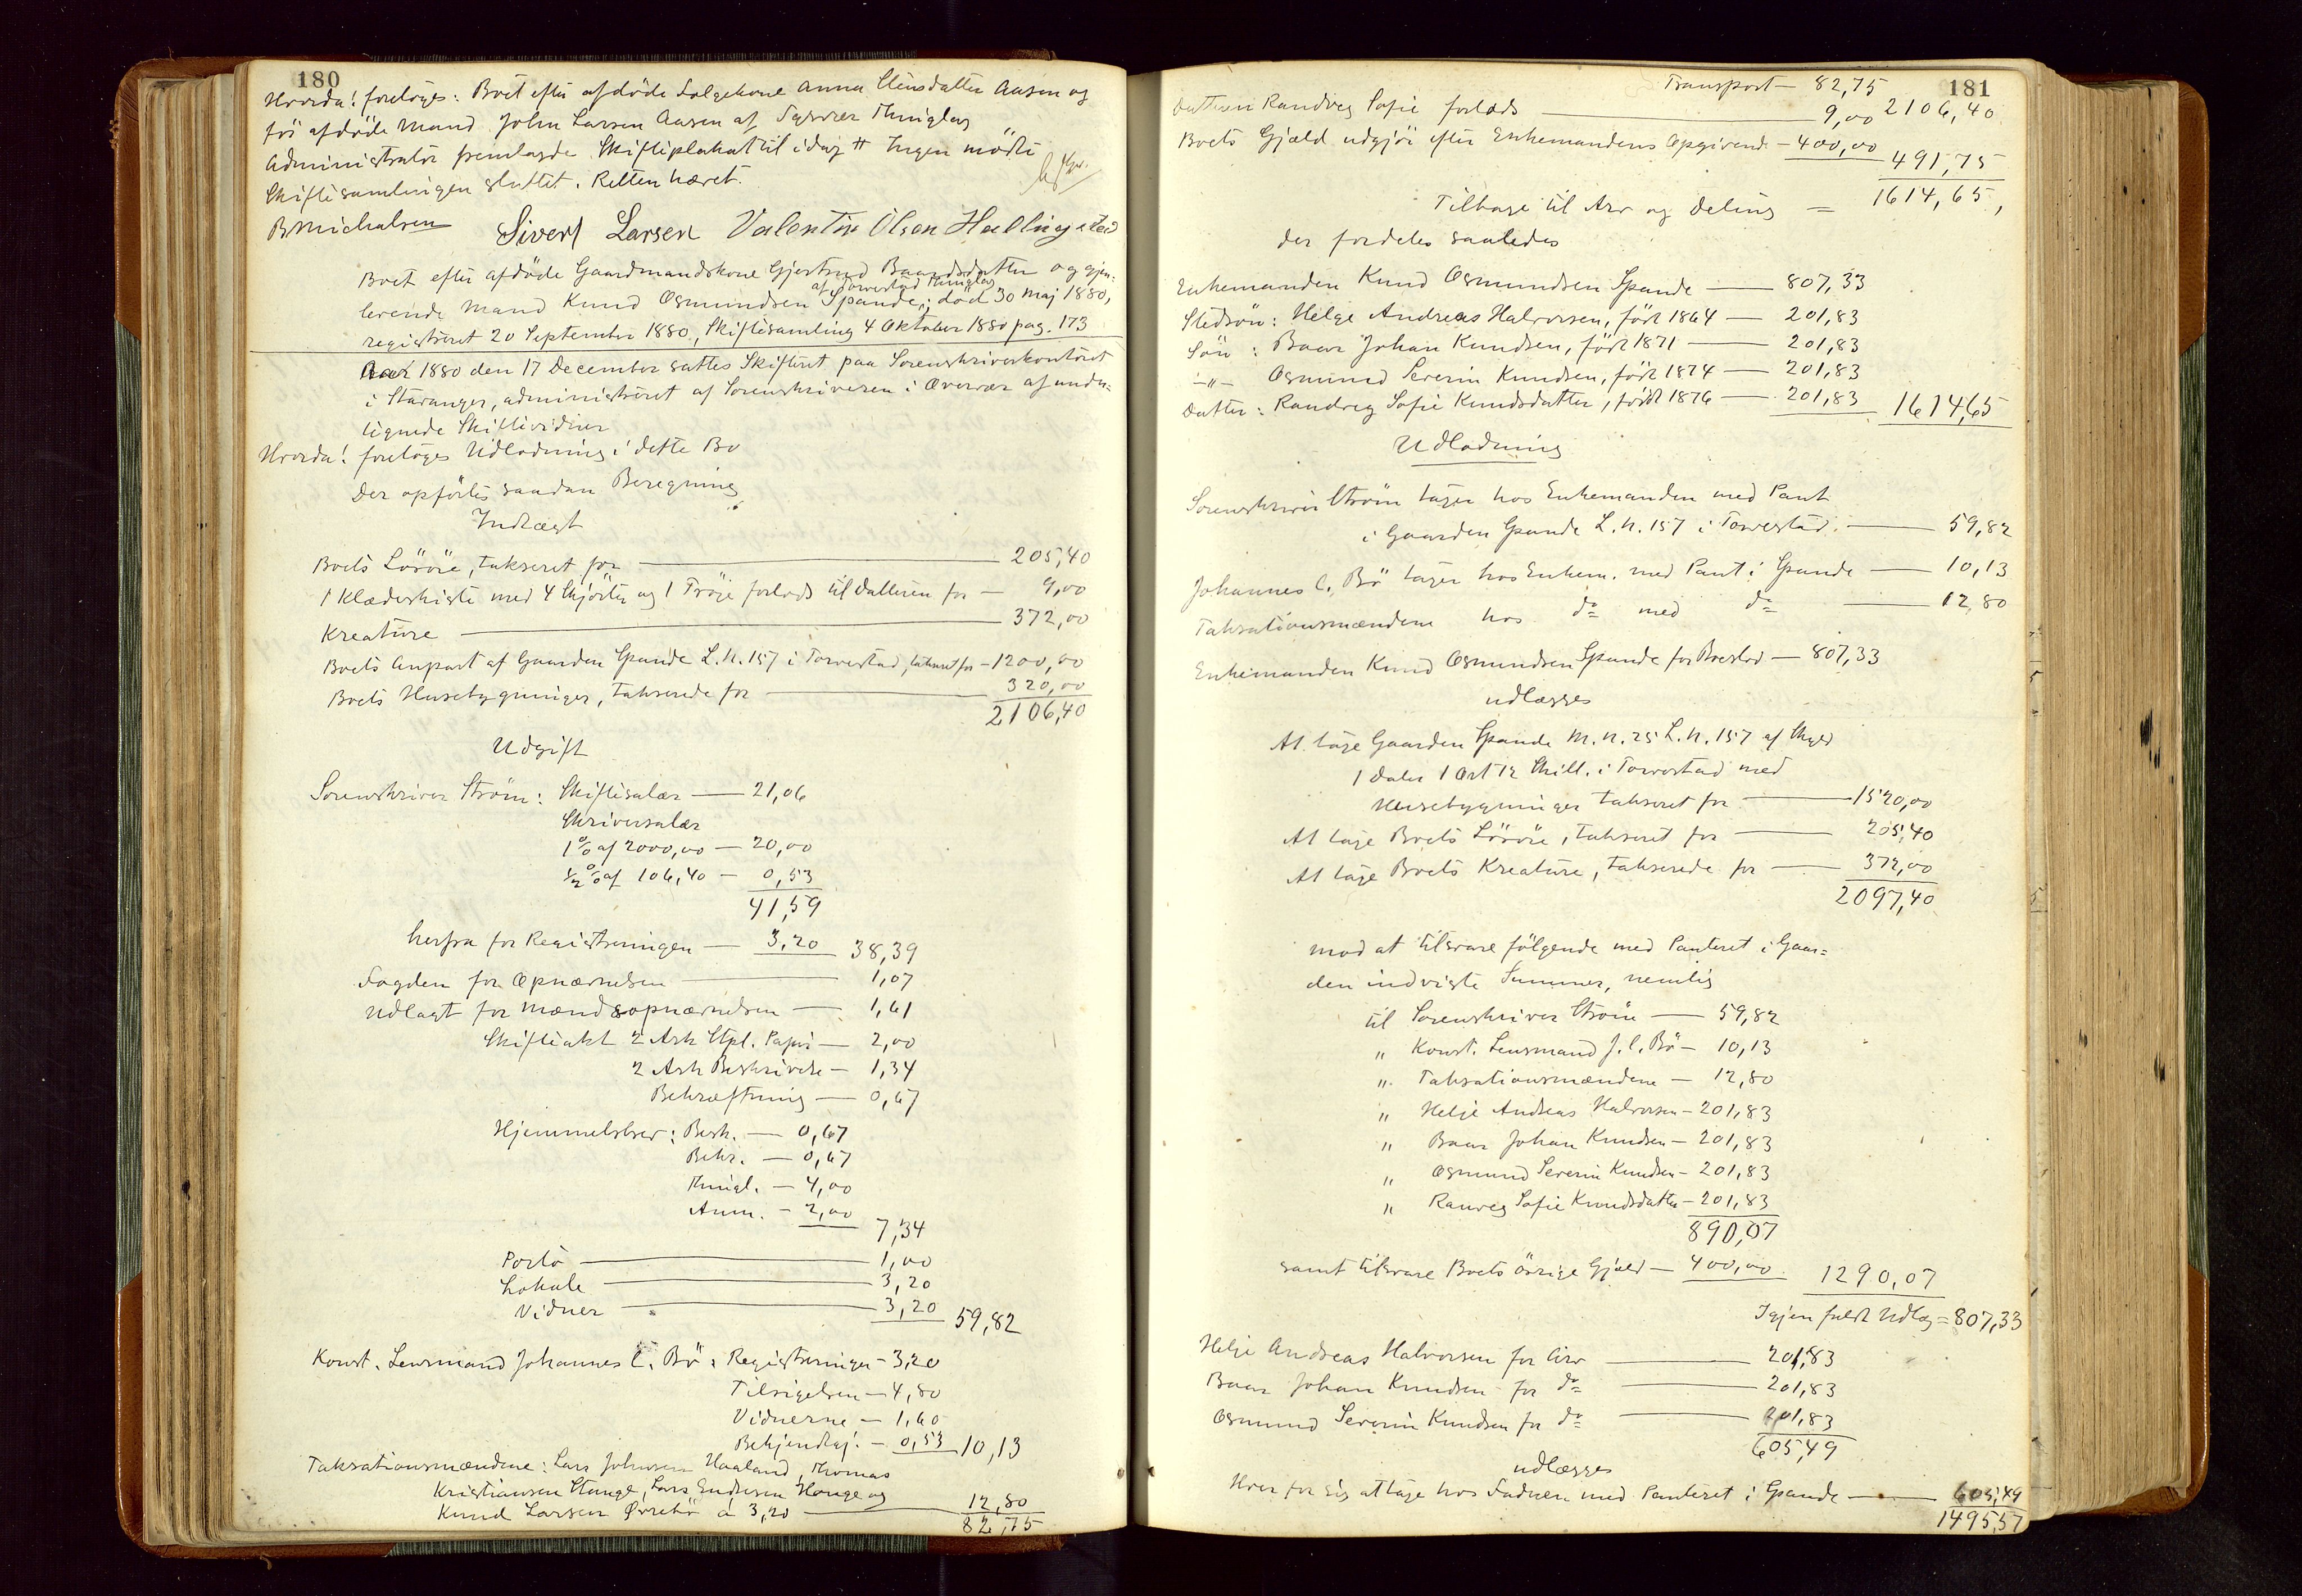 180
Hvorda! foretoges: Boet efter afdøde Følgekone Anna Stensdatter Aasen og
før afdøde Mand John Larsen Aasen af Tysvær Thinglag
Administrator fremlagde Skifteplakat til idag # Ingen mødte
Skiftesamlingen sluttet. Retten hævet.
B Michalsen Sivert Larsen Valentin Olsen Hallingstad
Boet efter afdøde Gaardmandskone Gjertrud Baardsdatter og gjen-
af Torvestad Thinglag
levende Mand Knud Osmundsen Spande, død 30 Maj 1880,
registreret 20 September 1880, Skiftesamling 4 Oktober 1880 pag. 173
Aar 1880 den 17 December sattes Skifteret paa Sorenskriverkontoret
i Stavanger, administreret af Sorenskriveren i Overvær af under-
tegnede Skiftevidner
Hvorda! foretoges Udlodning i dette Bo
Der opførtes saadan Beregning
Indtægt
Boets Løsøre, takseret for — 205,40
1 Klædeskiste med 4 Skjørter og 1 Trøje forlods til Datteren for — 9,00
Kreature — 372,00
Boets Anpart af Gaarden Spande L.N. 157 i Torvestad, takseret for — 1200,00
Boets Husebygninger, takserede for — 320,00
2106,40
Udgift
Sorenskriver Strøm: Skiftesalær — 21,06
Skriversalær
1% af 2000,00 — 20,00
½% af 106,40 — 0,53
41,59
herfra for Registreringen — 3,20 38,39
Fogden for Opnævnelsen — 1,07
Udlagt for Mændsopnævnelsen — 1,61
Skifteakt 2 Ark Stpl. Papir — 2,00
2 Ark Beskrivelse — 1,34
Bekræftning — 0,67
Hjemmelsbrev: Besk. — 0,67
Bekr. — 0,67
Thingl. — 4,00
Anm. — 2,00
7,34
Porto — 1,00
Lokale — 3,20
Vidner — 3,20 59,82
Konst. Lensmand Johannes C. Bø: Registreringen — 3,20
Tilsigelsen — 4,80
Vidnerne — 1,60
Bekjendtgj. — 0,53 10,13
Taksationsmændene: Lars Johnsen Haaland, Thomas
Kristiansen Stange, Lars Endresen Hauge og
Knud Larsen Øvrebø à 3,20 — 12,80
82,75
181
Transport — 82,75
Datteren Randveg Sofie forlods — 9,00 2106,40
Boets Gjæld udgjør efter Enkemandens Opgivende — 400,00
491,75
Tilbage til Arv og Deling = 1614,65,
der fordeles saaledes
Enkemanden Knud Osmundsen Spande — 807,33
Stedsøn: Helge Andreas Halvorsen, født 1864 — 201,83
Søn: Baar Johan Knudsen, født 1871 — 201,83
—"— Osmund Severin Knudsen, født 1874 — 201,83
Datter: Randveg Sofie Knudsdatter, født 1876 — 201,83 1614,65
Udlodning
Sorenskriver Strøm tager hos Enkemanden med Pant
i Gaarden Spande L.N. 157 i Torvestad. — 59,82
Johannes C. Bø tager hos Enkem. med Pant i Spande — 10,13
Taksationsmændene hos do med do — 12,80
Enkemanden Knud Osmundsen Spande for Boeslod — 807,33
udlægges
At tage Gaarden Spande M.N. 25 L.N. 157 af Skyld
1 Daler 1 Ort 12 Skill. i Torvestad med
Husebygninger takseret for — 1520,00
At tage Boets Løsøre, takseret for — 205,40
At tage Boets Kreature, takserede for — 372,00
2097,40
mod at tilsvare følgende med Panteret i Gaar=
den indviste Summer, nemlig
til Sorenskriver Strøm — 59,82
" Konst. Lensmand J. C. Bø — 10,13
" Taksationsmændene — 12,80
" Helje Andreas Halvorsen — 201,83
" Baar Johan Knudsen — 201,83
" Osmund Severin Knudsen — 201,83
" Ranveg Sofie Knudsdatter — 201,83
890,07
samt tilsvare Boets øvrige Gjæld — 400,00 1290,07
Igjen fuldt Udlæg = 807,33
Helje Andreas Halvorsen for Arv — 201,83
Baar Johan Knudsen for do — 201,83
Osmund Severin Knudsen for do — 201,83
605,49
udlægges
Hver for sig at tage hos Faderen med Panteret i Spande — 605,49
1495,57